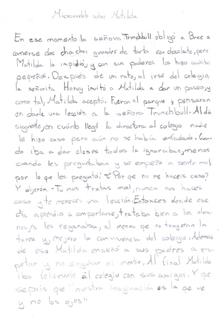 Microrrelato sobre Matilda
En ese momento la señora Trunchbull obligó a Bruce a
comerse dos chochos grandes de tarta de chocolate, pero
Matilda lo impidió, y con sus poderes lo hizo
pequeños. Después de un rato, al irse del colegio
la señorita Honey invitó a Matilda a dar un paseo, y
como tal, Matilda aceptó. Fueron al parque y pensaron
en darle una lección a la señora Trunchbull. Al día
siguiente, en cuanto llegó la directora al colegio nadie
le hizo caso pero aún no se había
iba a dar clases todos la ignoraban, menos
cuando les preguntaba y se empezó a sentir mal
por lo que les preguntó: "¿Por qué no me hacéis caso?
Y dijeron: - Tú nos tratas mal, nunca nos haces
caso y te mereces una lección. Entonces desde ese
día aprendió a comportarse, trataba bien a los alum-
nos, les regañaba, al menos que no trajeran la
tarea y mejoró la convivencia del colegio. Además
de eso Matilda enseñó a sus padres a res-
petar y no engañar al resto. Al final Matilda
iba feliz al colegio con sus amigos. Y que
sepáis que "nuestra imaginación es la que ve
y no los ojos"